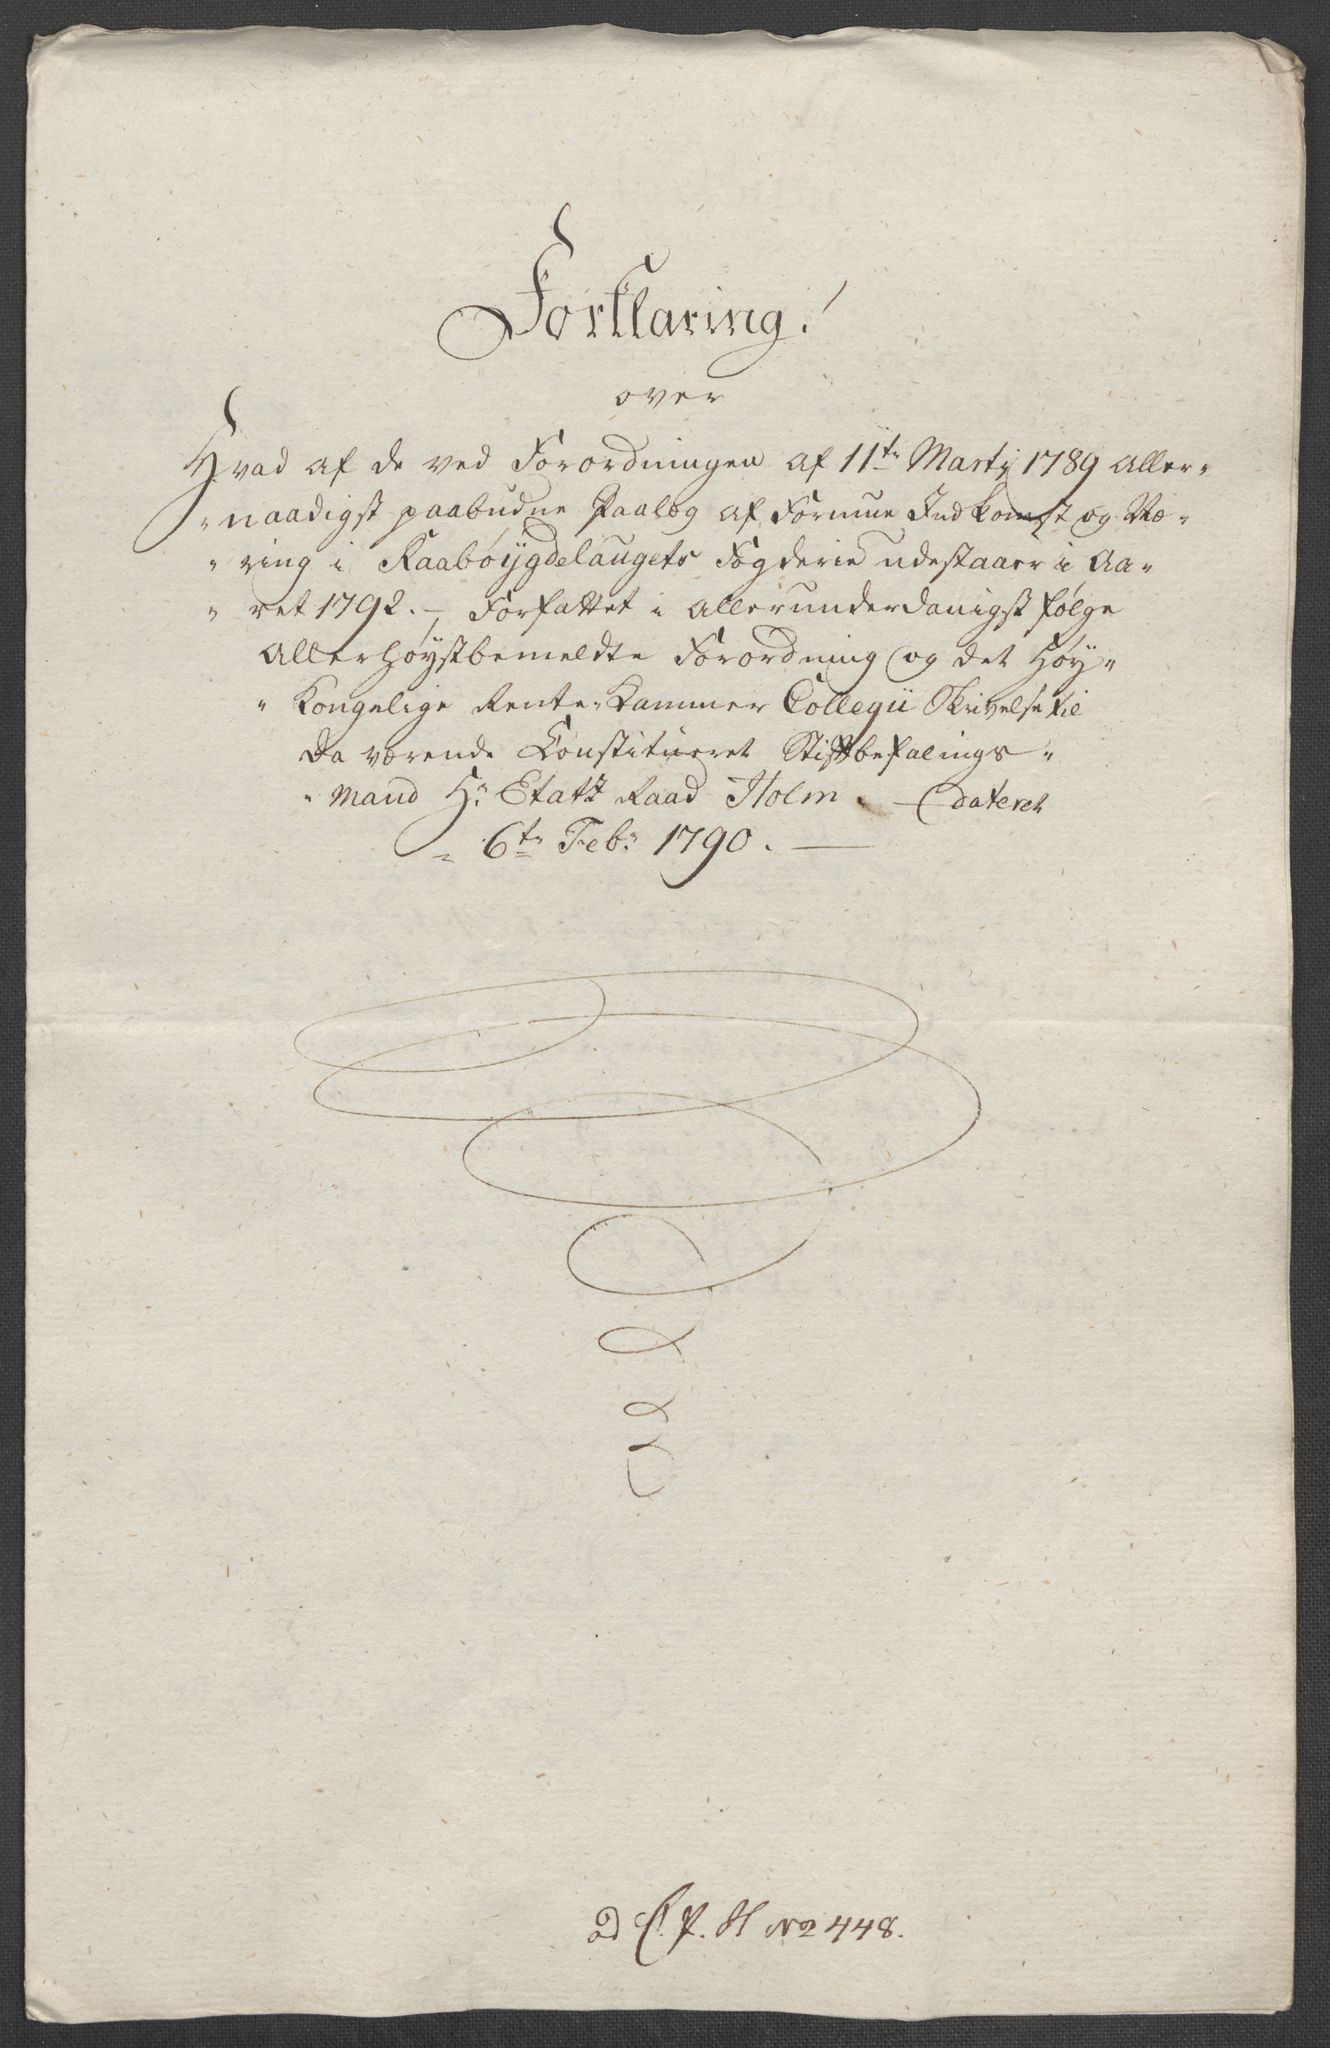 Forklaring!
over
Hvad af de ved Forordningen af 11te Martij 1789 aller-
-naadigst paabudne Paalæg af Formue Indkomst og Næ-
-ring i Raabøijgdelaugets Fogderie udestaaer i Aa-
-ret 1792. -, Forfattet i allerunderdanigst følge
Allerhøystbemeldte Forordning og det Høy-
-Kongelige Rente-Kammer Collegii Skrivelse til
Da værende Constitueret Stiftbefalings-
-Mand Hr Etatz Raad Holm - dateret
6te Febr: 1790. -
P. H No 448.